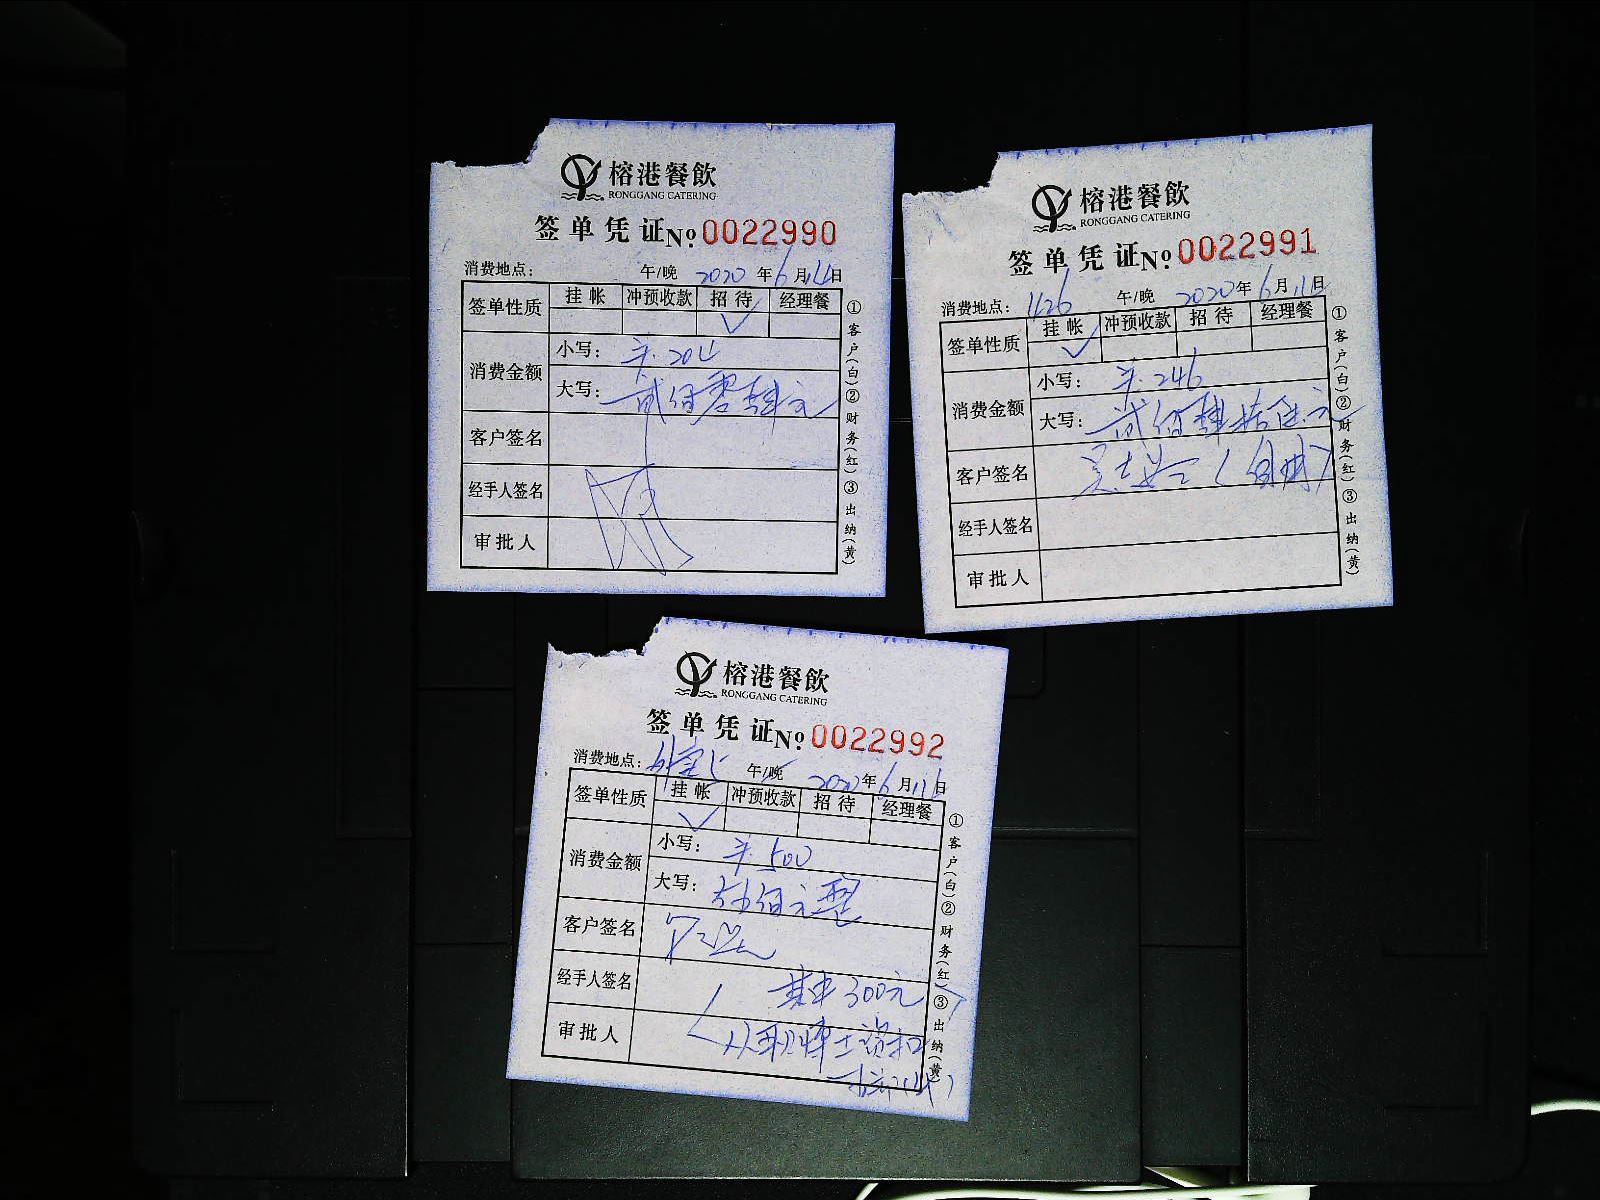 榕港餐飲
RONGGANG CATERING
签单凭证 Nº 0022990
消费地点： 午/晚 2020年6月14日
签单性质 挂帐 冲预收款 招待 经理餐
✓
消费金额 小写：204
大写：贰佰零肆元
客户签名
经手人签名
审批人
①客户(白)②财务(红)③出纳(黄)
榕港餐飲
RONGGANG CATERING
签单凭证 Nº 0022991
消费地点：1126 午/晚 2020年6月15日
签单性质 挂帐 冲预收款 招待 经理餐
✓
消费金额 小写：246
大写：贰佰肆拾陆元
客户签名
经手人签名
审批人
①客户(白)②财务(红)③出纳(黄)
榕港餐飲
RONGGANG CATERING
签单凭证 Nº 0022992
消费地点： 午/晚 2020年6月16日
签单性质 挂帐 冲预收款 招待 经理餐
✓
消费金额 小写：500
大写：伍佰元整
客户签名
经手人签名 其中300元
审批人
①客户(白)②财务(红)③出纳(黄)